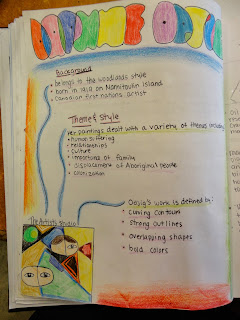 DAPHNE ODJIG
Background
• belongs to the woodlands style
• born in 1919 on Manitoulin Island
• Canadian first nations artist
Theme & Style
Her paintings dealt with a variety of themes including:
• human suffering
• relationships
• culture
• importance of family
• displacement of Aboriginal people
• colonization
Odjig's work is defined by:
• curving contours
• strong outlines
• overlapping shapes
• bold colors
The Artist's Studio